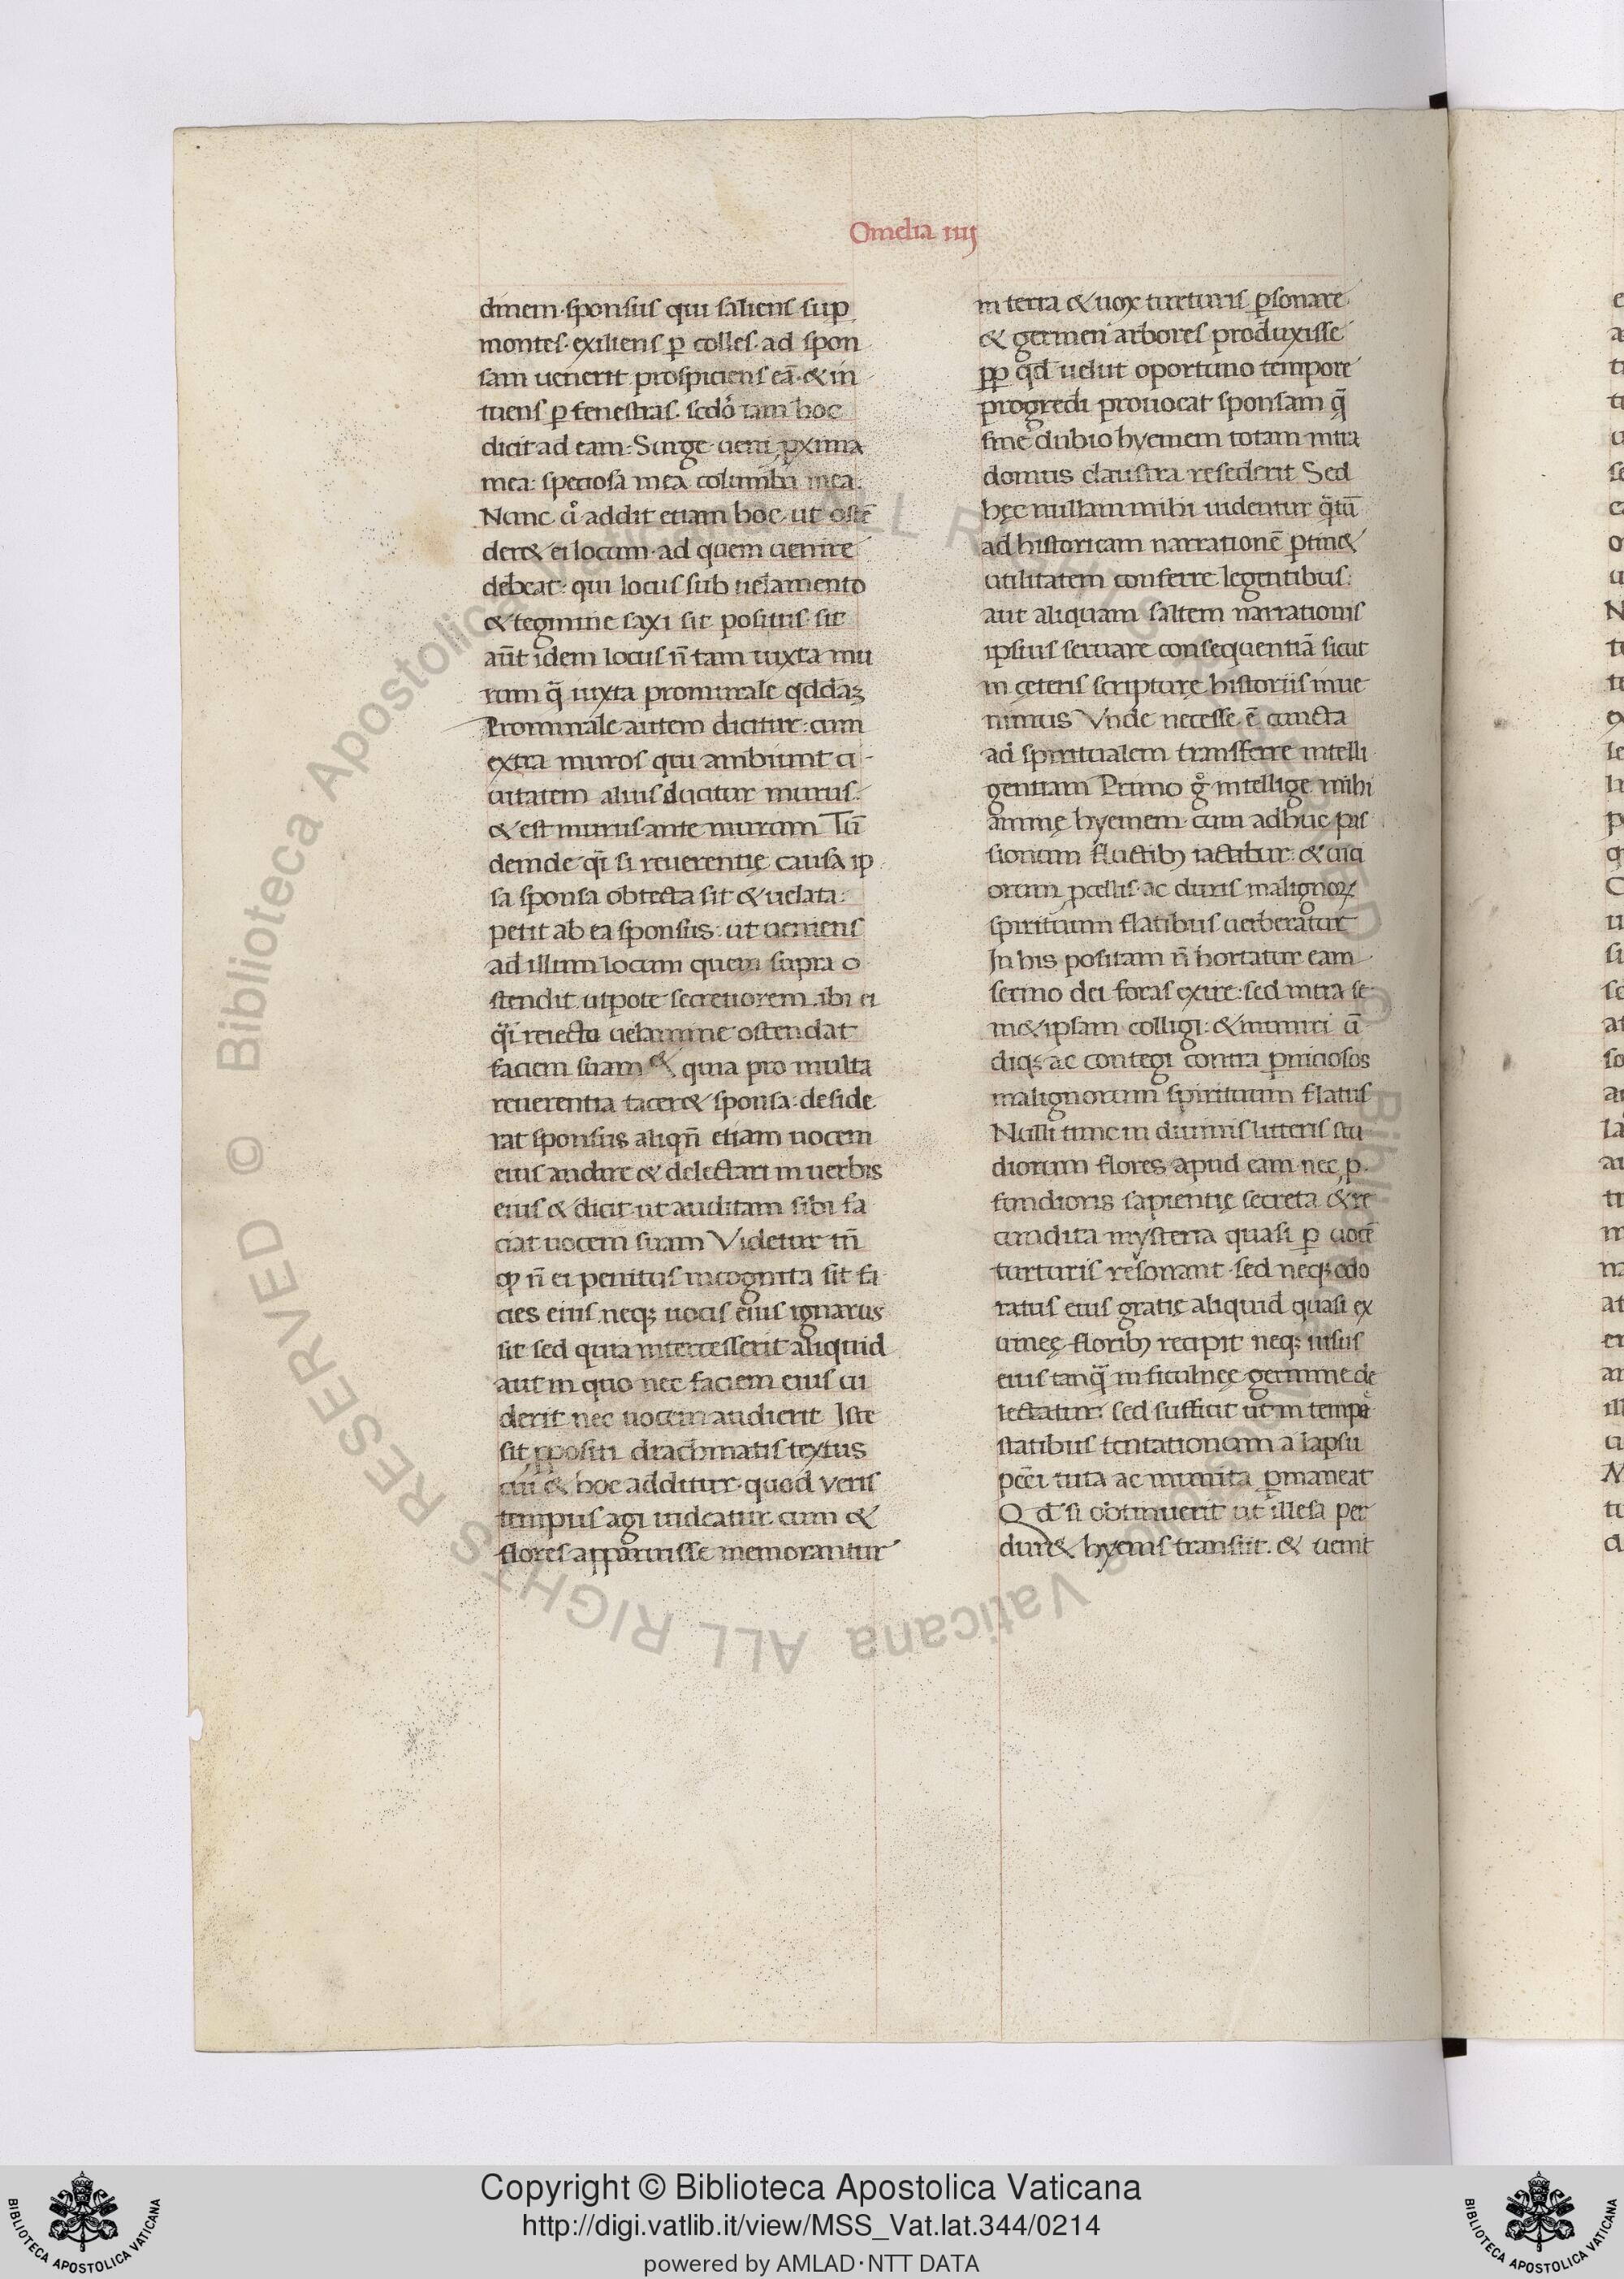 Omelia iiij
dinem·sponsus qui saliens sup
montes·exiliens p̱ colles·ad spon
sam uenerit prospiciens eā·& in
tuens p̱ fenestras· sedo᷒ iam hoc
dicit ad eam: Surge ueni p̱xima
mea: speciosa mea columba mea:
Nunc u᷒ addit etiam hoc·ut ostē
der& ei locum·ad quem uenire
debeat: qui locus sub uelamento
& tegmine saxi sit positus·sit
aūt idem locus n̄ tam iuxta mu
rum q̄ iuxta promurale qddaꝫ
Promurale autem dicitur: cum
extra muros qui ambiunt ci-
uitatem alius ducitur murus:
& est murus·ante murum Tū
deinde·q̄i si reuerentię causa ip
sa sponsa obtecta sit & uelata:
petit ab ea sponsus: ut ueniens
ad illum locum quem supra o
stendit utpote secretiorem ibi ei
q̄i reiecto uelamine ostendat
faciem suam & quia pro multa
reuerentia tacer& sponsa·deside
rat sponsus aliqn̄ etiam uocem
eius audire & delectari in uerbis
eius & dicit·ut auditam sibi fa
ciat uocem suam Videtur tn̄
ꝙ n̄ ei penitus incognita sit fa
cies eius neqꝫ uocis eius ignarus
sit sed quia intercesserit aliquid
aut in quo nec faciem eius ui
derit nec uocem audierit Iste
sit ꝓpositi drachmatis textus
cui & hoc additur·quod veris
tempus agi uideatur cum &
flores apparuisse memorantur
in terra & uox turturis p̱sonare
& germen arbores produxisse
pp̱ qd uelut oportuno tempore
progredi prouocat sponsam q̄
sine dubio hyemem totam intra
domus claustra resederit Sed
hęc nullam mihi uidentur q̄tū
ad historicam narrationē p̱tin&
utilitatem conferre legentibus:
aut aliquam saltem narrationis
ipsius seruare consequentiā sicut
in ceteris scripturę historiis inue
nimus Vnde necesse ē cuncta
ad spiritualem transferre intelli
gentiam Primo g᷒ intellige mihi
animę hyemem·cum adhuc pas
sionum fluctibꝫ iactatur: & uiti
orum p̱cellis·ac duris malignoꝝ
spirituum flatibus uerberatur
In his positam n̄ hortatur eam
sermo dei foras exire: sed intra se
m&ipsam colligi: & muniri ū
diqꝫ ac contegi contra p̱niciosos
malignorum spirituum flatus
Nulli tunc in diuinis litteris stu
diorum flores apud eam nec ꝓ
fundioris sapientię secreta & re
condita mysteria quasi p̱ uocē
turturis resonant·sed neqꝫ odo
ratus eius gratię aliquid quasi ex
uineę floribꝫ recipit neqꝫ uisus
eius tanq̄ in ficulneę germine de
lectatur: sed sufficit ut in tempe
statibus tentationum a lapsu
pecc̄i tuta ac munita p̱maneat
Qd si obtinuerit ut illesa per
dur& hyems transiit·& uenit
Copyright © Biblioteca Apostolica Vaticana
http://digi.vatlib.it/view/MSS_Vat.lat.344/0214
powered by AMLAD·NTT DATA